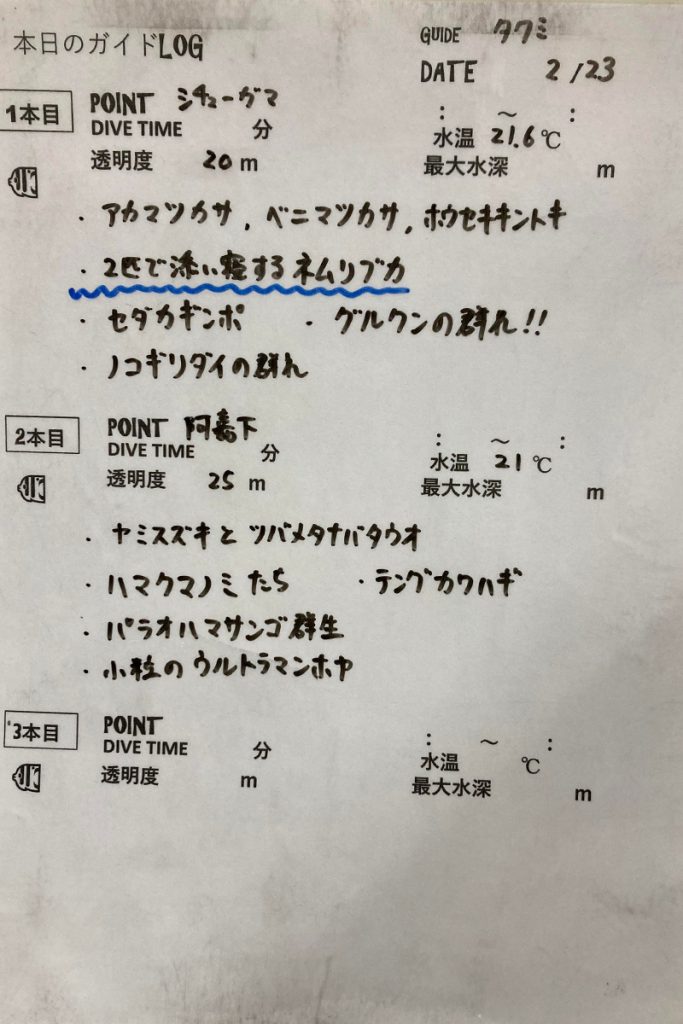 本日のガイドLOG GUIDE タクミ
DATE 2/23
1本目 POINT シチューガマ : ～ :
DIVE TIME 分 水温 21.6℃
透明度 20m 最大水深 m
・アカマツカサ, ベニマツカサ, ホウセキキントキ
・2匹で添い寝するネムリブカ
・セダカギンポ ・グルクンの群れ!!
・ノコギリダイの群れ
2本目 POINT 阿嘉下 : ～ :
DIVE TIME 分 水温 21℃
透明度 25m 最大水深 m
・ヤミスズキとツバメタナバタウオ
・ハマクマノミたち ・テングカワハギ
・パラオハマサンゴ群生
・小粒のウルトラマンホヤ
3本目 POINT : ～ :
DIVE TIME 分 水温 ℃
透明度 m 最大水深 m